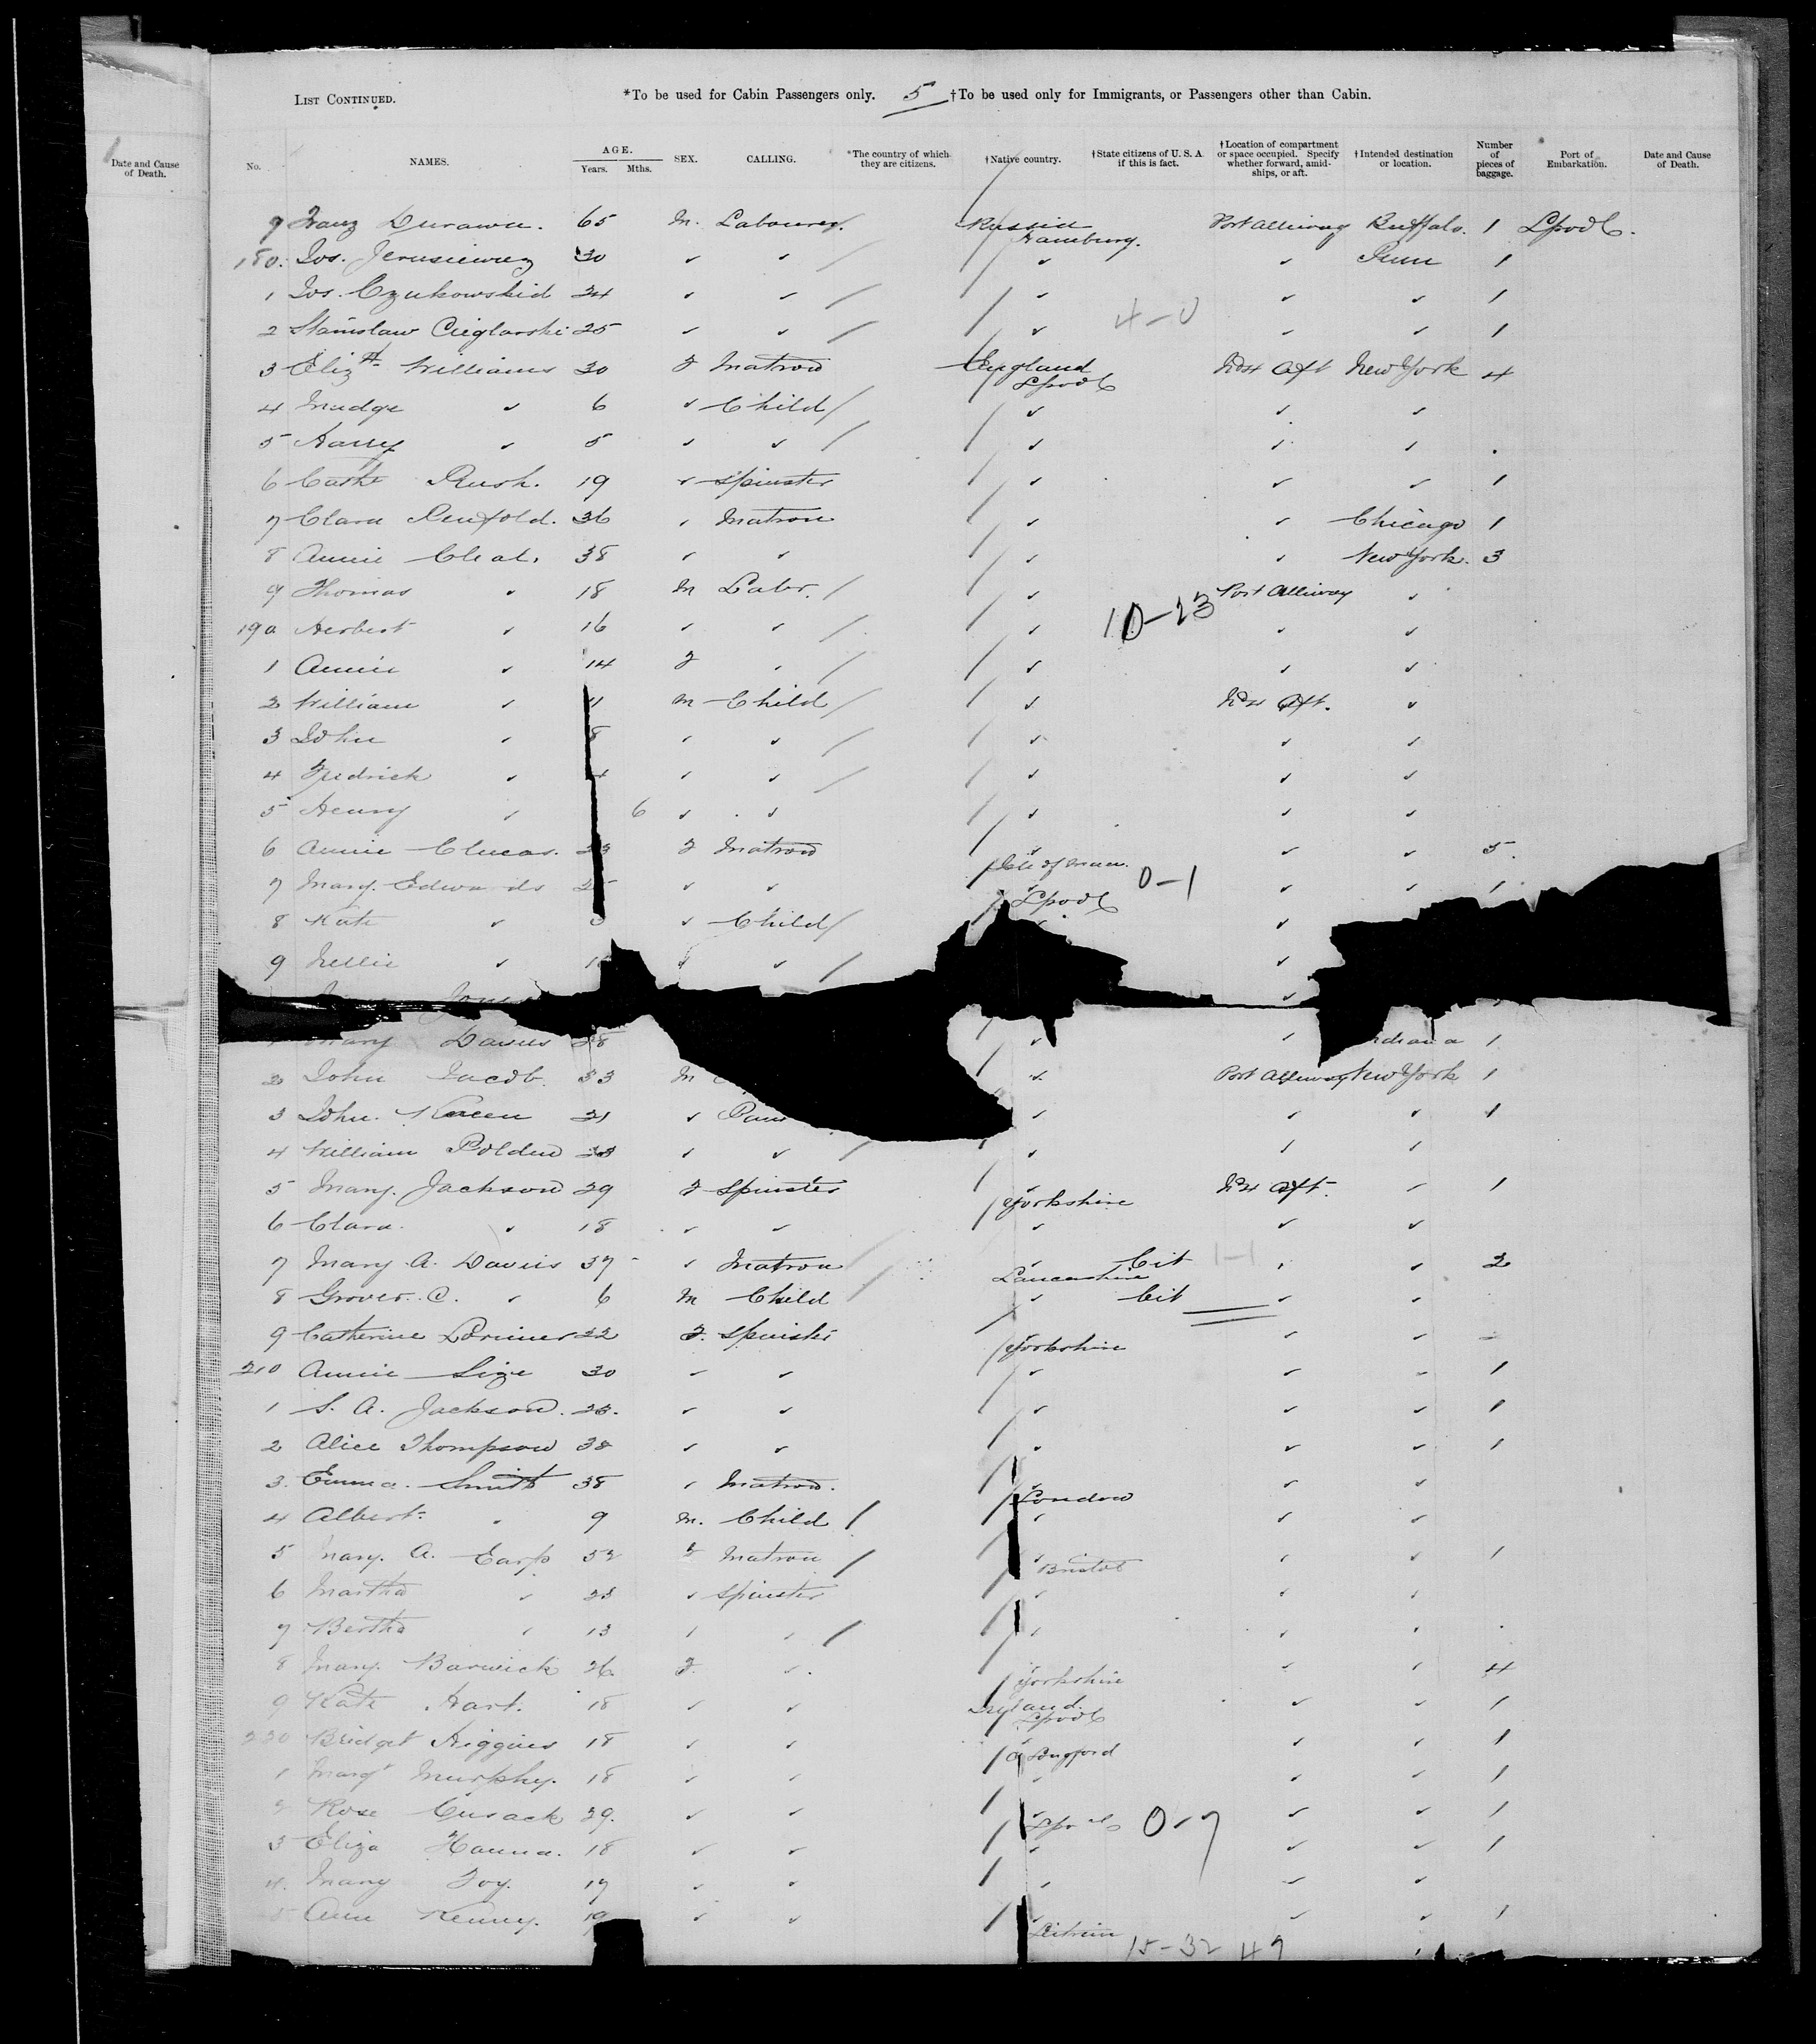 LIST CONTINUED. *To be used for Cabin Passengers only. 5 †To be used only for Immigrants, or Passengers other than Cabin.
Date and Cause of Death. No. NAMES. AGE. Years. Mths. SEX. CALLING. *The country of which they are citizens. †Native country. †State citizens of U. S. A. if this is fact. †Location of compartment or space occupied. Specify whether forward, amidships, or aft. †Intended destination or location. Number of pieces of baggage. Port of Embarkation. Date and Cause of Death.
9 Franz Durawa. 65 M. Labourer. Russia Hamburg. Port Alleway Buffalo. 1 Lpool.
180. Jos. Jerusiewiez 30 ✓ ✓ ✓ ✓ Penn 1
1 Jos. Czukowskid 24 ✓ ✓ ✓ ✓ ✓ 1
2 Stanislaw Cieglarski 25 ✓ ✓ ✓ 4-0 ✓ ✓ 1
3 Elizth Williams 30 F Matron England Lpool Aft New York 4
4 Madge ✓ 6 ✓ Child ✓ ✓ ✓
5 Harry ✓ 5 ✓ ✓ ✓ ✓ ✓
6 Cath Rush. 19 ✓ Spinster ✓ ✓ ✓ 1
7 Clara Penfold. 36 ✓ Matron ✓ ✓ Chicago 1
8 Annie Cleat. 38 ✓ ✓ ✓ ✓ New York. 3
9 Thomas ✓ 18 M Labr. ✓ Port Alleway ✓
190 Herbert ✓ 16 ✓ ✓ ✓ 10-23 ✓ ✓
1 Annie ✓ 14 F ✓ ✓ ✓ ✓
2 William ✓ 11 M Child ✓ Aft. ✓
3 John ✓ 8 ✓ ✓ ✓ ✓ ✓
4 Fredrick ✓ 4 ✓ ✓ ✓ ✓ ✓
5 Henry ✓ 6 ✓ ✓ ✓ ✓ ✓
6 Annie Clucas. F Matron Isle of Man. ✓ ✓ 5
7 Mary. Edwards ✓ ✓ Lpool 0-1 ✓ ✓ 1
8 Kate ✓ ✓ Child ✓
9 Nellie ✓ ✓ ✓
Jones ✓
Mary Davies 28 ✓ ✓ 1
2 John Jacob. 33 M ✓ Port Alleway New York 1
3 John. 21 ✓ ✓ ✓ ✓ 1
4 William Polden ✓ ✓ ✓ ✓ ✓
5 Mary. Jackson 29 F Spinster Yorkshire Aft. ✓ 1
6 Clara. ✓ 18 ✓ ✓ ✓ ✓ ✓
7 Mary A. Davies 37 ✓ Matron Lancashire Cit 1-1 ✓ ✓ 2
8 Grover. C. ✓ 6 M Child ✓ Cit ✓ ✓
9 Catherine Lorimer 22 F. Spinster Yorkshire ✓ ✓
210 Annie Size 30 ✓ ✓ ✓ ✓ ✓ 1
1 S. A. Jackson. 23. ✓ ✓ ✓ ✓ ✓ 1
2 Alice Thompson 38 ✓ ✓ ✓ ✓ ✓ 1
3. Emma. Smith 38 ✓ Matron. London ✓ ✓
4 Albert ✓ 9 M. Child ✓ ✓ ✓
5 Mary. A. Earp 52 F Matron Bristol ✓ ✓ 1
6 Martha ✓ 23 ✓ Spinster ✓ ✓ ✓
7 Bertha ✓ 13 ✓ ✓ ✓ ✓ ✓
8 Mary. Barwick 26 F. ✓ Yorkshire ✓ ✓ 4
9 Kate Hart. 18 ✓ ✓ Ireland. Lpool ✓ ✓ 1
220 Bridget Higgins 18 ✓ ✓ Longford ✓ ✓ 1
1 Margt Murphy. 18 ✓ ✓ ✓ ✓ ✓ 1
2 Rose Cusack 29. ✓ ✓ Lpool 0-7 ✓ ✓ 1
3 Eliza Hanna. 18 ✓ ✓ ✓ ✓ ✓ 1
4. Mary Foy. 19 ✓ ✓ ✓ ✓ ✓
5 Ann Kenny. 19 ✓ ✓ Leitrim ✓ ✓ 1
15-32 47